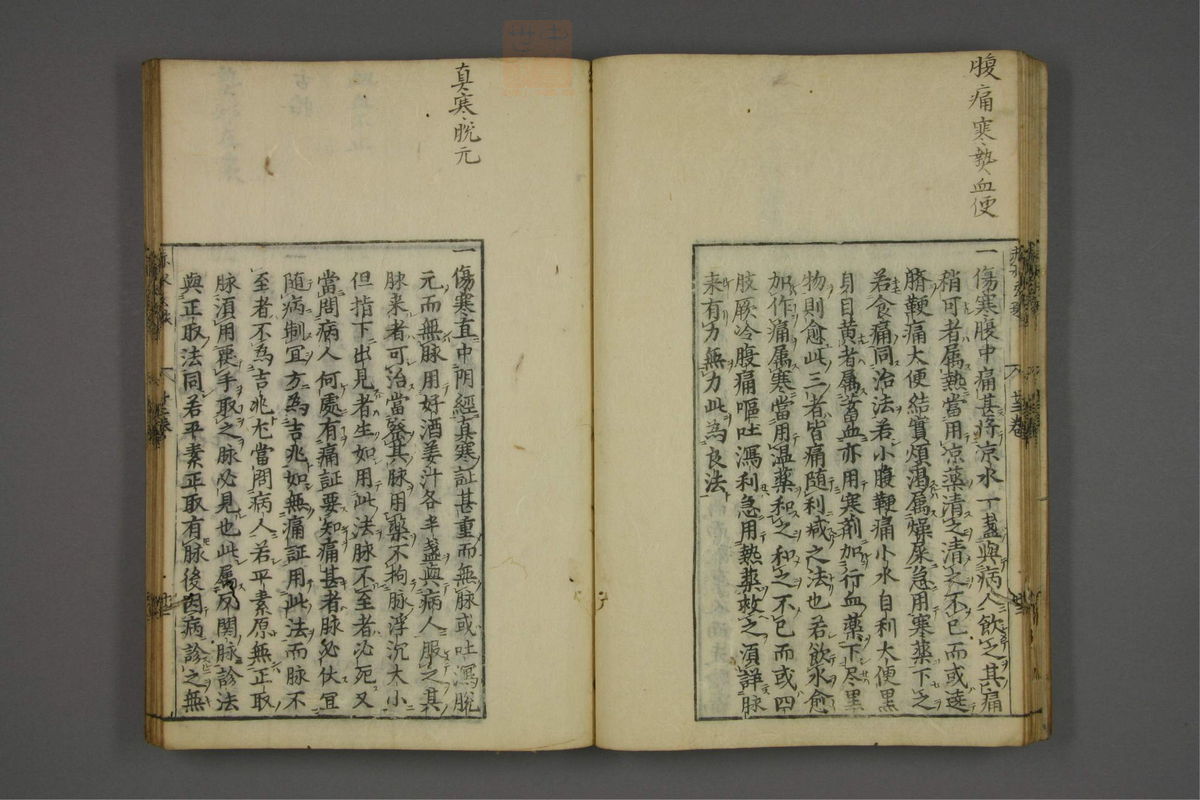 腹痛寒熱血便
一傷寒腹中痛甚将凉水一盞與病人飲之其痛
稍可者属熱當用凉藥清之清之不已而或遶
臍鞕痛大便結實煩渴属燥屎急用寒藥下之
若食痛同治法若小腹鞕痛小水自利大便黒
身目黄者属蓄血亦用寒剤加行血藥下尽黒
物則愈此三者皆痛随利减之法也若飲水愈
加作痛属寒當用温藥和之和之不已而或四
肢厥冷腹痛嘔吐瀉利急用熱藥救之須詳脉
来有力無力此為良法
真寒脱元
一傷寒直中阴經真寒証甚重而無脉或吐瀉脱
元而無脉用好酒姜汁各半盞與病人服之其
脉来者可治當察其脉用藥不拘脉浮沉大小
但指下出見者生如用此法脉不至者必死又
當問病人何處有痛証要知痛甚者脉必伏宜
随病制宜方為吉兆如無痛証用此法而脉不
至者不為吉兆尤當問病人若平素原無正取
脉須用覆手取之脉必見也此属反関脉診法
與正取法同若平素正取有脉後因病診之無